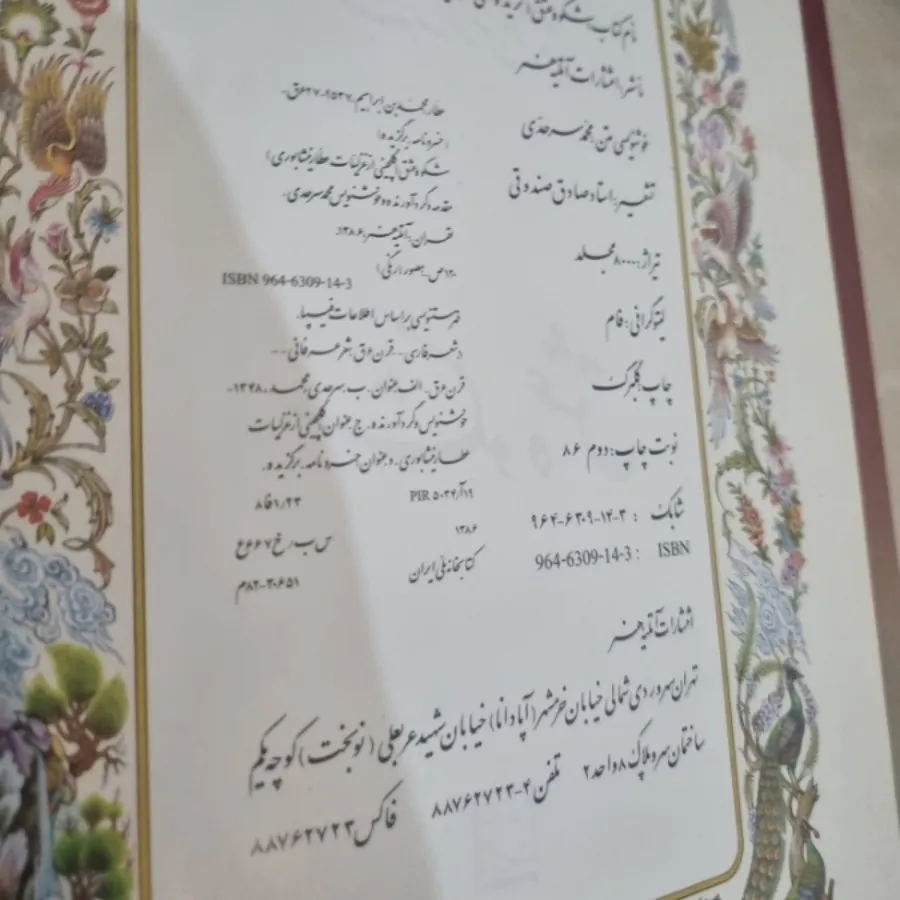 نام کتاب: شکوه عشق (گزیده
ناشر: انتشارات آتلیه هنر
خوشنویسی متن: محمد سرحدی
تشعیر: استاد صادق صندوقی
تیراژ: ۸۰۰۰ مجلد
لیتوگرافی: فام
چاپ: گلبرگ
نوبت چاپ: دوم ۸۶
شابک : ۹۶۴-۶۳۰۹-۱۴-۳
ISBN : 964-6309-14-3
عطار، محمد بن ابراهیم، ۵۳۷؟-۶۲۷ق.
(خسرونامه. برگزیده)
شکوه عشق (گلچینی از غزلیات عطار نیشابوری)
مقدمه و گردآورنده و خوشنویس محمد سرحدی.
تهران: آتلیه هنر، ۱۳۸۶.
۱۲۰ص. مصور (رنگی)
ISBN 964-6309-14-3
فهرستنویسی براساس اطلاعات فیپا.
شعر فارسی -- قرن ۶ق. شعر عرفانی --
قرن ۶ق. الف. عنوان. ب. سرحدی، محمد، ۱۳۴۸-.
خوشنویس و گردآورنده. ج. عنوان: گلچینی از غزلیات
عطار نیشابوری. د. عنوان: خسرونامه. برگزیده.
PIR ۵۰۳۴/آ۱۹ ۸فا۱/۲۳
۱۳۸۶
کتابخانه ملی ایران ۸۲-۳۰۶۵۱م
انتشارات آتلیه هنر
تهران سهروردی شمالی خیابان خرمشهر (آپادانا) خیابان شهید عربعلی (نوبخت) کوچه یکم
ساختمان سرو پلاک ۸ واحد ۲ تلفن ۴-۸۸۷۶۲۷۲۳ فاکس ۸۸۷۶۲۷۲۳